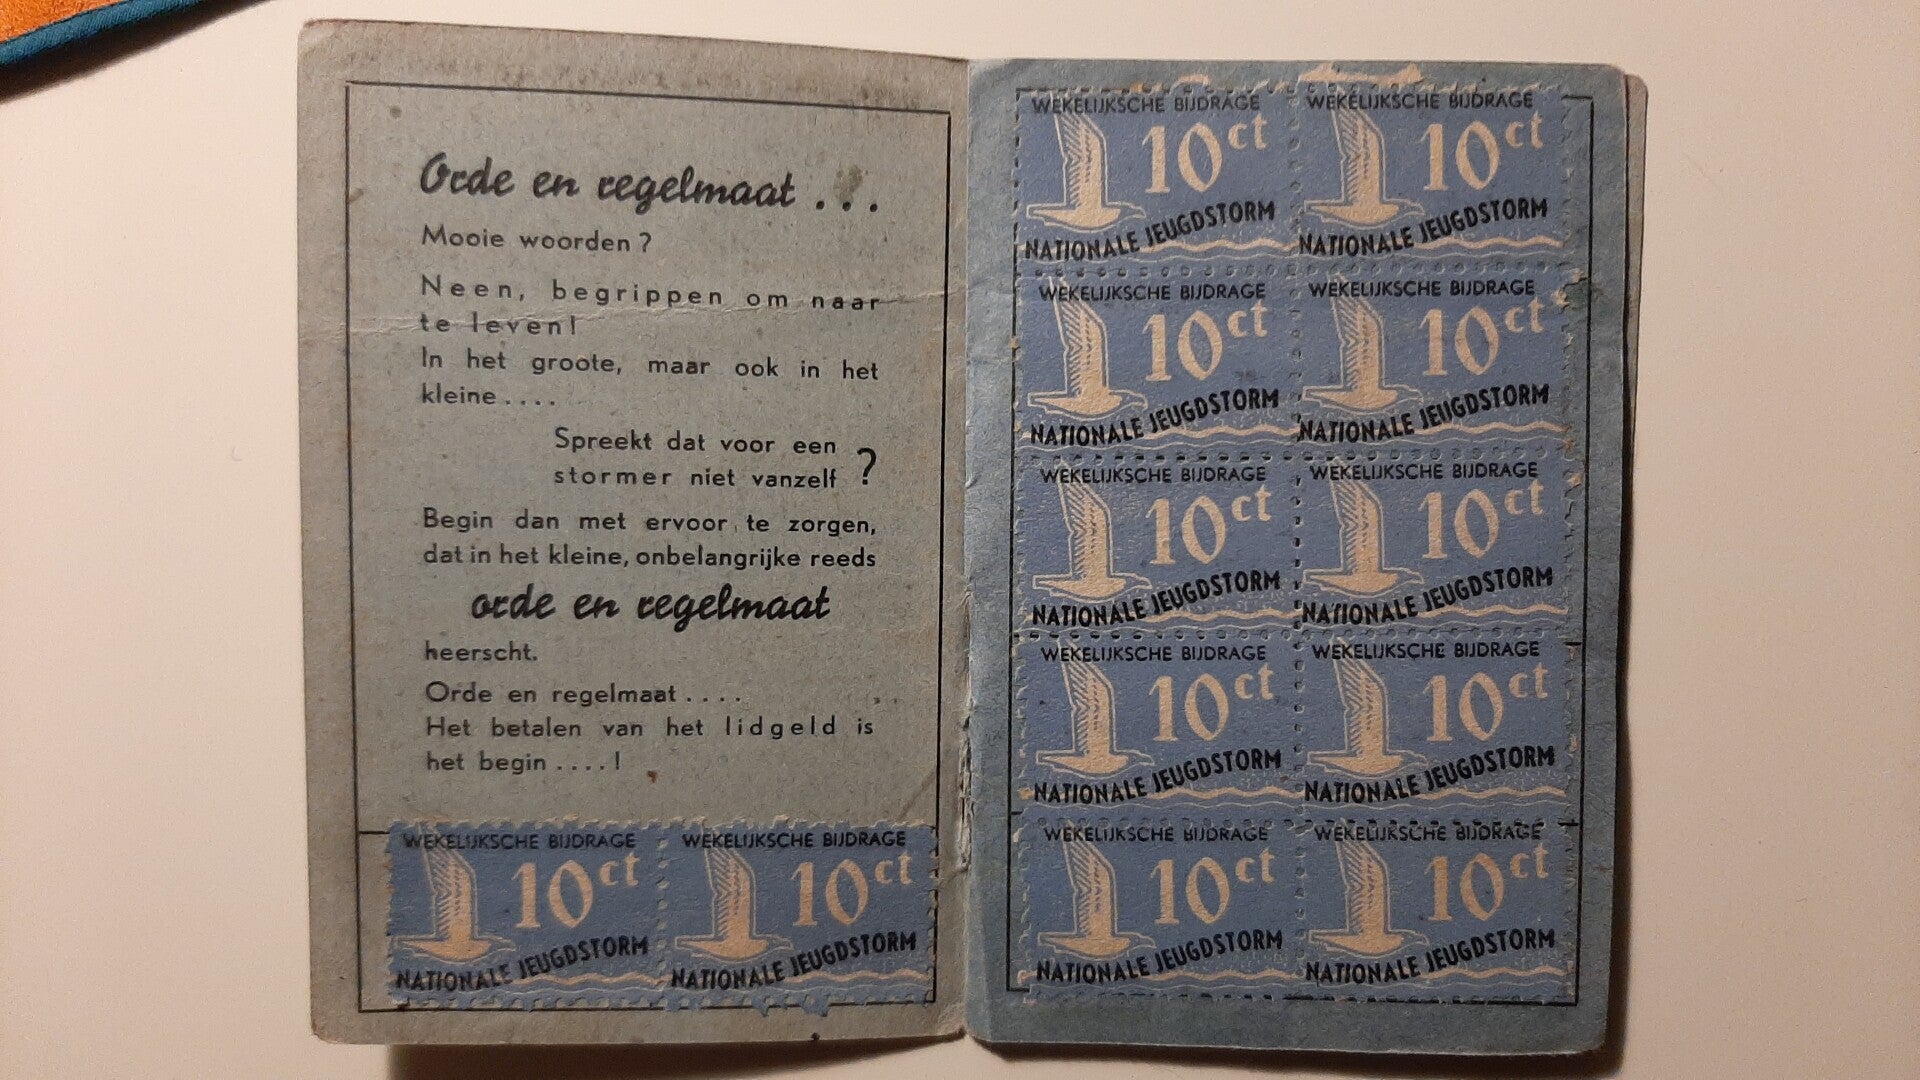 Orde en regelmaat . . .
Mooie woorden?
Neen, begrippen om naar
te leven!
In het groote, maar ook in het
kleine ....
Spreekt dat voor een
stormer niet vanzelf ?
Begin dan met ervoor te zorgen,
dat in het kleine, onbelangrijke reeds
orde en regelmaat
heerscht.
Orde en regelmaat ....
Het betalen van het lidgeld is
het begin ....!
WEKELIJKSCHE BIJDRAGE
10ct
NATIONALE JEUGDSTORM
WEKELIJKSCHE BIJDRAGE
10ct
NATIONALE JEUGDSTORM
WEKELIJKSCHE BIJDRAGE
10ct
NATIONALE JEUGDSTORM
WEKELIJKSCHE BIJDRAGE
10ct
NATIONALE JEUGDSTORM
WEKELIJKSCHE BIJDRAGE
10ct
NATIONALE JEUGDSTORM
WEKELIJKSCHE BIJDRAGE
10ct
NATIONALE JEUGDSTORM
WEKELIJKSCHE BIJDRAGE
10ct
NATIONALE JEUGDSTORM
WEKELIJKSCHE BIJDRAGE
10ct
NATIONALE JEUGDSTORM
WEKELIJKSCHE BIJDRAGE
10ct
NATIONALE JEUGDSTORM
WEKELIJKSCHE BIJDRAGE
10ct
NATIONALE JEUGDSTORM
WEKELIJKSCHE BIJDRAGE
10ct
NATIONALE JEUGDSTORM
WEKELIJKSCHE BIJDRAGE
10ct
NATIONALE JEUGDSTORM